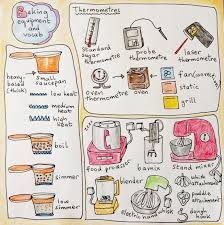 Baking
equipment
and
vocab
heavy-
based
(thick)
small
saucepan
low heat
medium
heat
high heat
boil
simmer
low
simmer
Thermometres
standard
sugar
thermometre
probe
thermometre
laser
thermometre
oven
thermometre
oven
fan
static
grill
food processor
bamix
stand mixer
blender
electric hand whisk
whisk
attachment
paddle
attachment
dough
hook